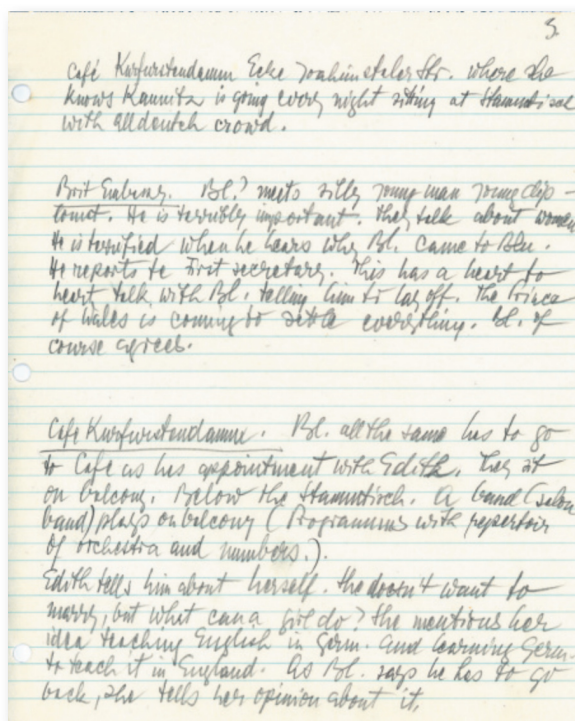 3.
Café Kurfurstendamm Ecke Joachimstaler Str. where she
knows Kaunitz is going every night sitting at Stammtisch
with alldeutsch crowd.
Brit Embassy. Bl.? meets silly young man young dip-
lomat. He is terribly important. They talk about women
He is terrified when he hears why Bl. came to Bln.
He reports to First secretary. This has a heart to
heart talk with Bl. telling him to lay off. The Prince
of Wales is coming to settle everything. Bl. of
course agrees.
Cafe Kurfurstendamm. Bl. all the same has to go
to Cafe as has appointment with Edith. They sit
on balcony. Below the Stammtisch. A band (salon
band) plays on balcony (Programms with repertoir
of orchestra and numbers.).
Edith tells him about herself. She doesn't want to
marry, but what can a girl do? She mentions her
idea teaching English in Germ. and learning Germ.
to teach it in England. As Bl. says he has to go
back, she tells her opinion about it.